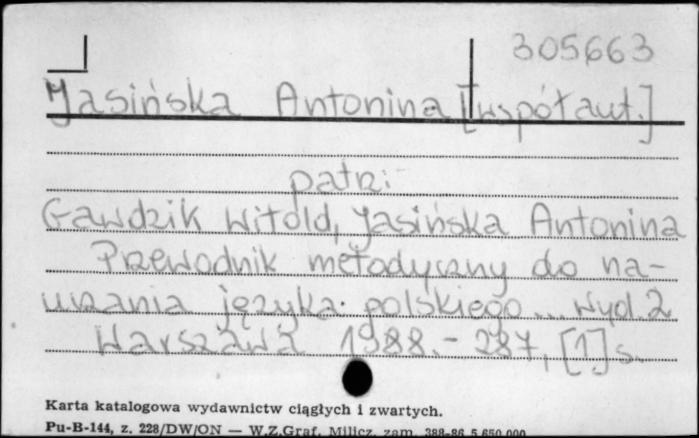 305663
Jasińska Antonina [współaut.]
patrz:
Gawdzik Witold, Jasińska Antonina
Przewodnik metodyczny do na-
uczania języka polskiego... Wyd. 2
Warszawa 1988. - 287, [1] s.
Karta katalogowa wydawnictw ciągłych i zwartych.
Pu-B-144, z. 228/DW/ON — W.Z.Graf. Milicz, zam. 388-86 5.650.000